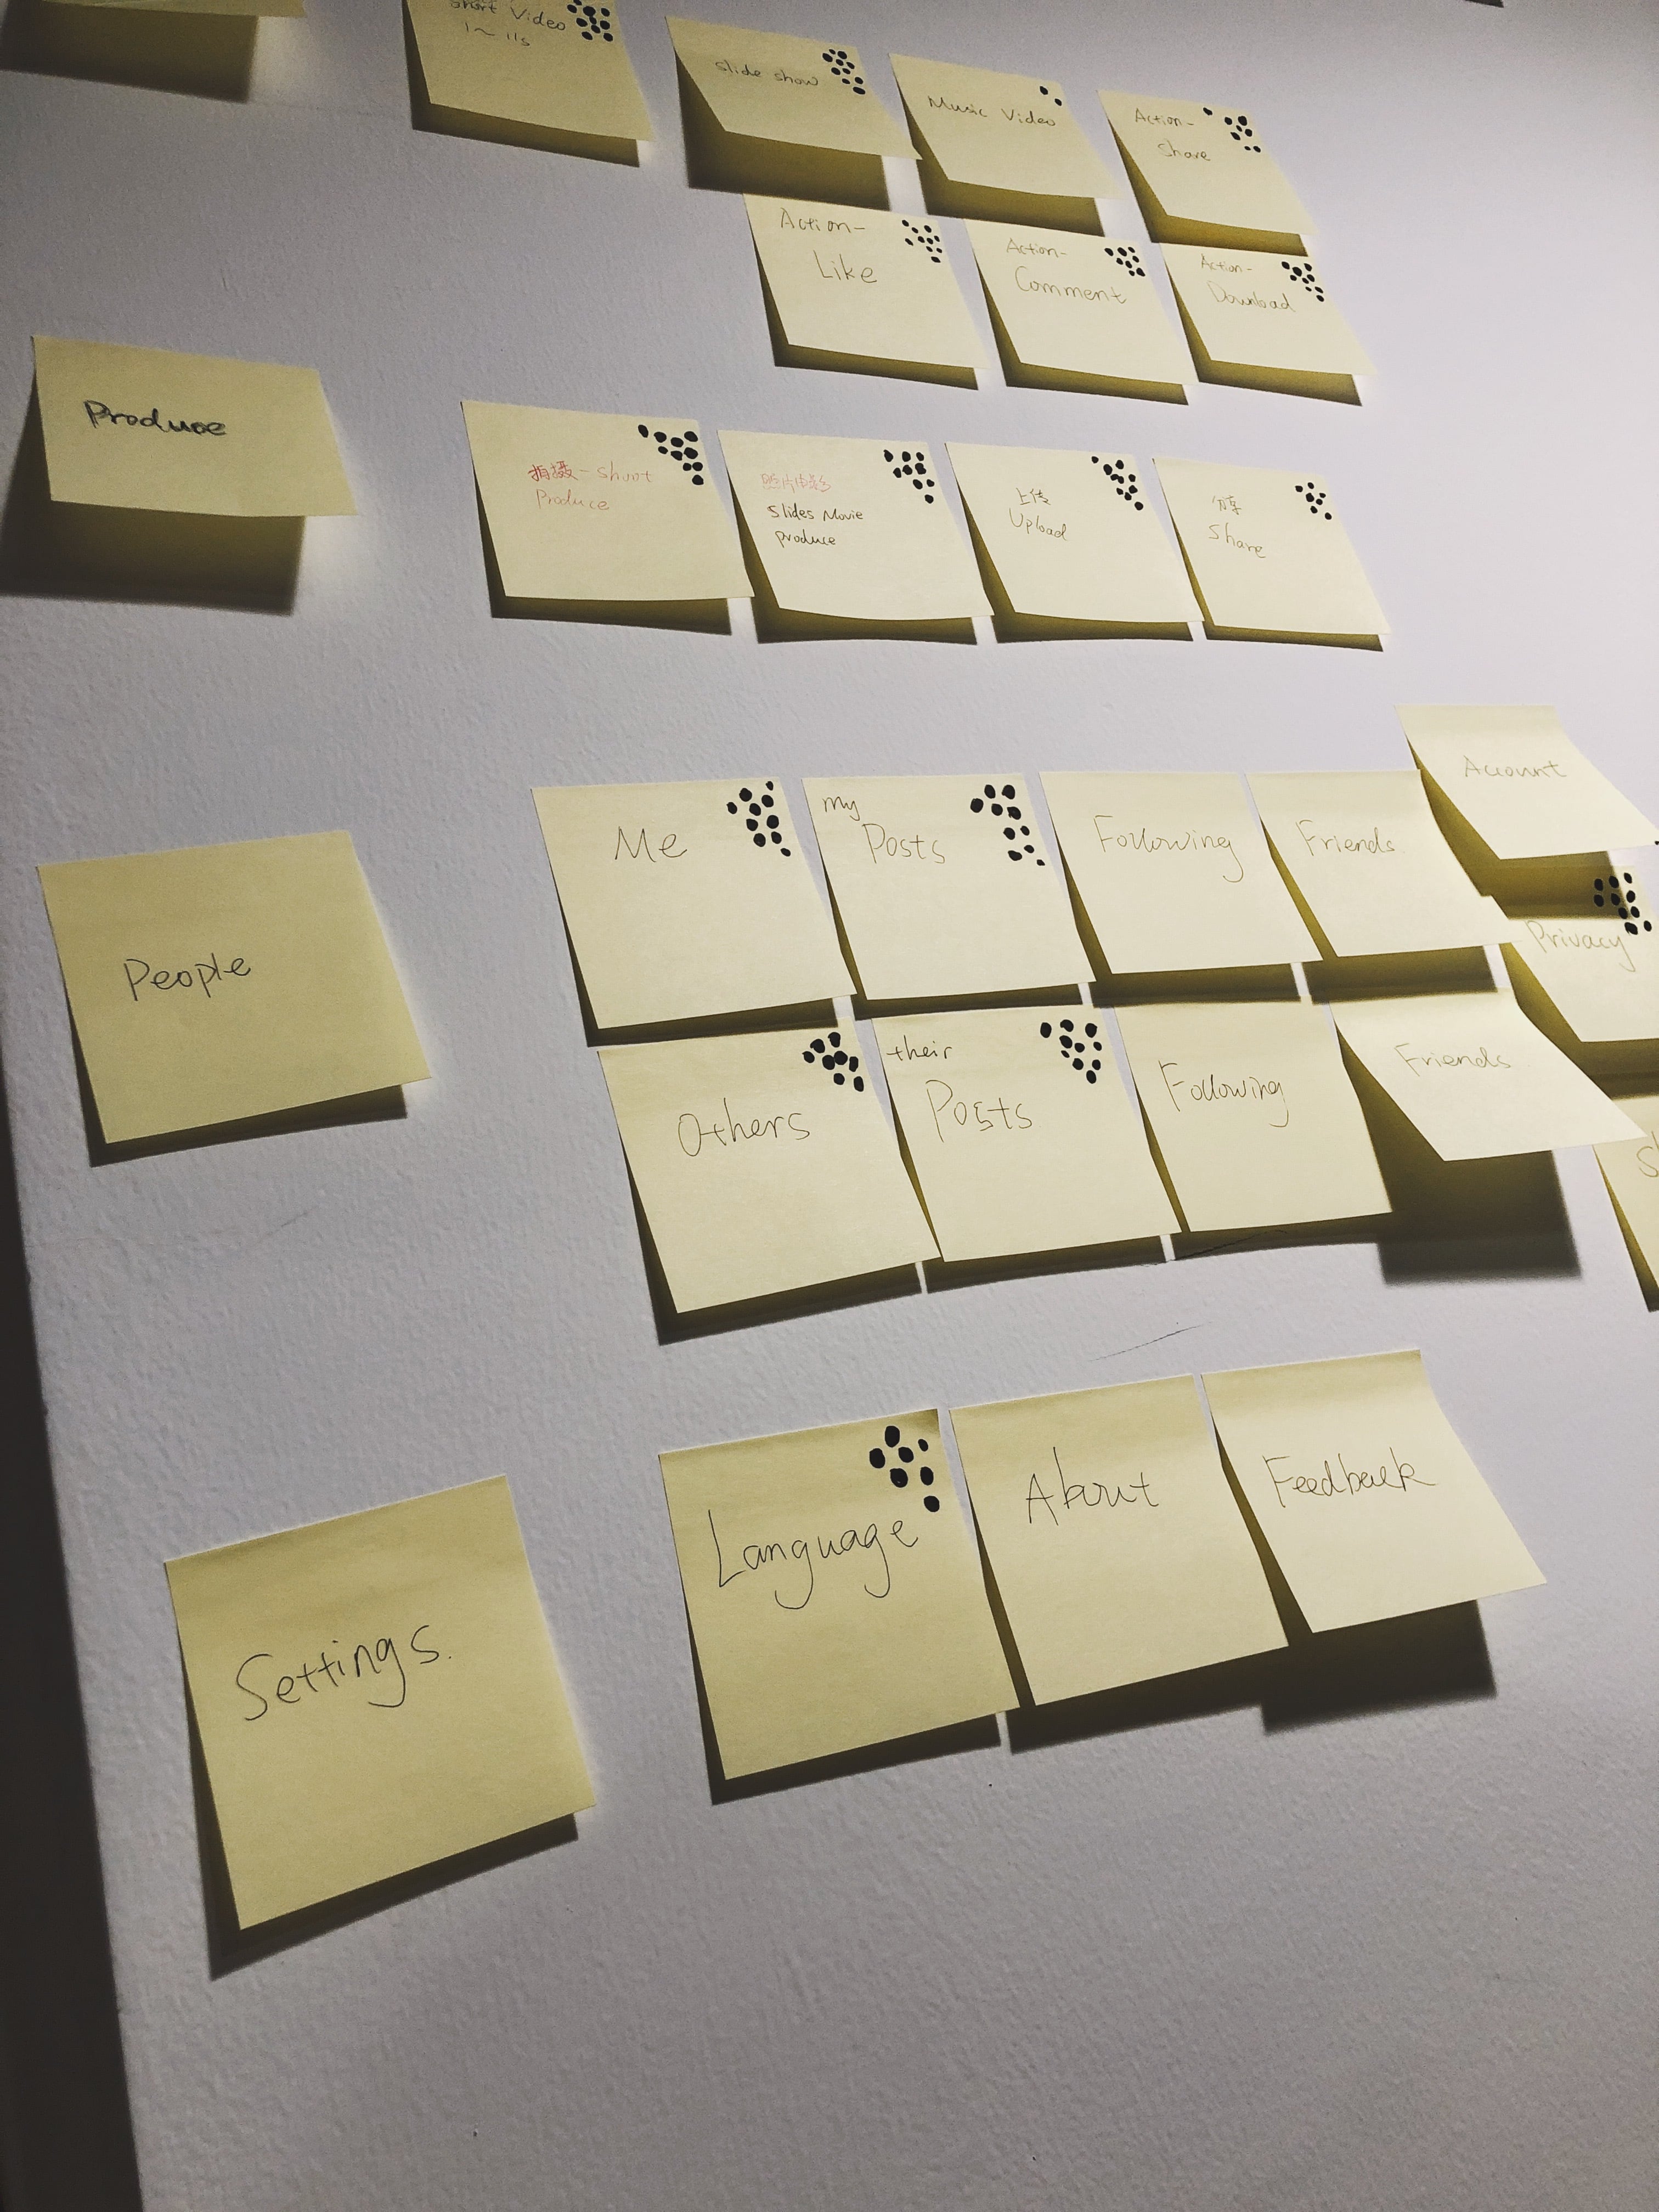 short Video
1~11s
slide show
Music Video
Action-
Share
Action-
Like
Action-
Comment
Action-
Download
Produce
拍摄-Shoot
Produce
照片电影
Slides Movie
produce
上传
Upload
分享
Share
Account
Me
my
Posts
Following
Friends
Privacy
People
Others
their
Posts
Following
Friends
Language
About
Feedback
Settings.